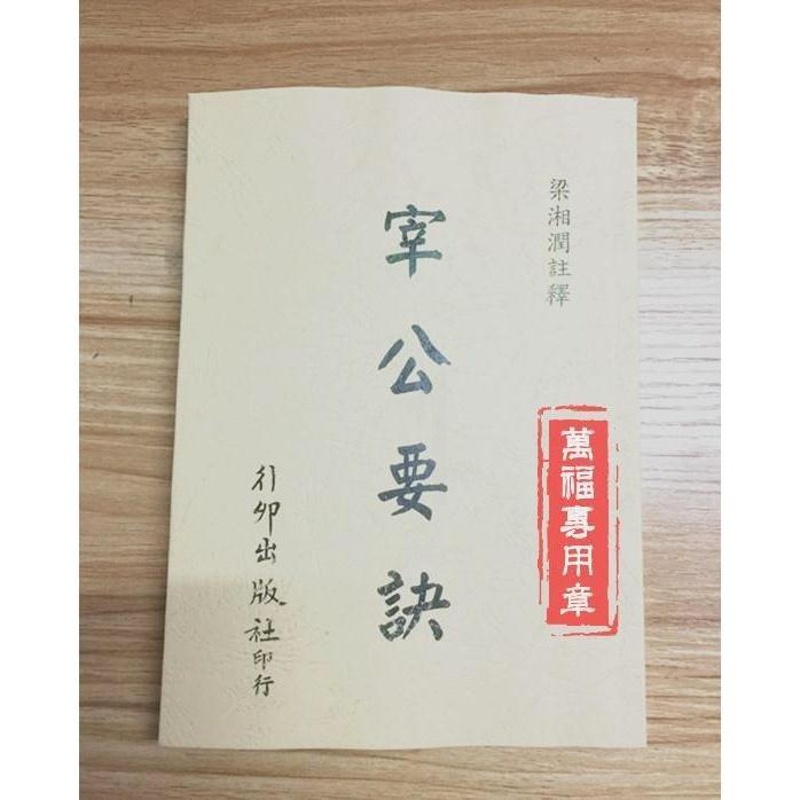 梁湘潤註釋
宰公要訣
行卯出版社印行
萬福專用章